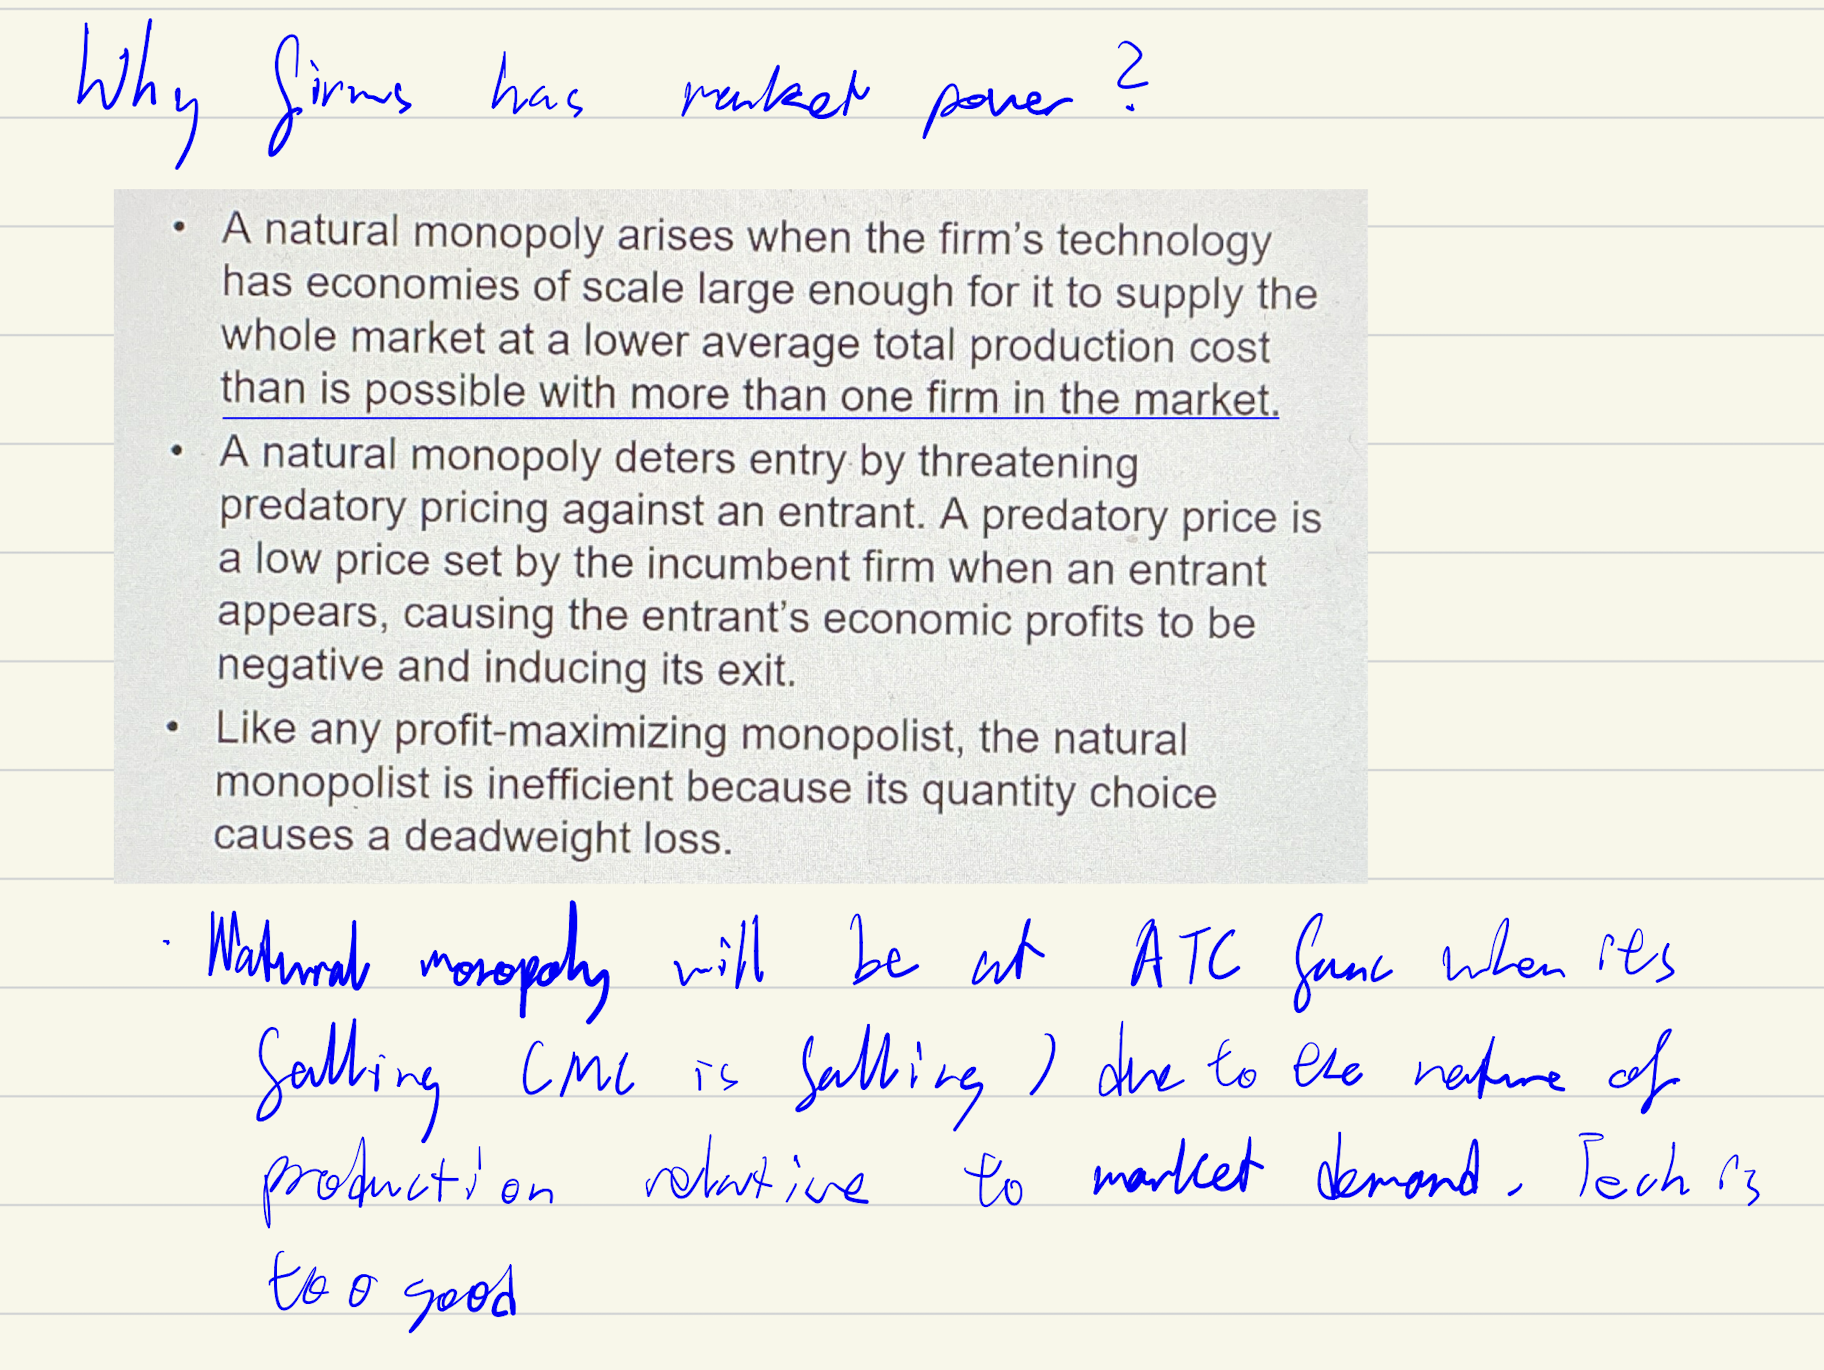 Why firms has market power?
• A natural monopoly arises when the firm's technology
has economies of scale large enough for it to supply the
whole market at a lower average total production cost
than is possible with more than one firm in the market.
• A natural monopoly deters entry by threatening
predatory pricing against an entrant. A predatory price is
a low price set by the incumbent firm when an entrant
appears, causing the entrant's economic profits to be
negative and inducing its exit.
• Like any profit-maximizing monopolist, the natural
monopolist is inefficient because its quantity choice
causes a deadweight loss.
· Natural monopoly will be at ATC func when its
falling (MC is falling) due to the nature of
production relative to market demand. Tech is
too good